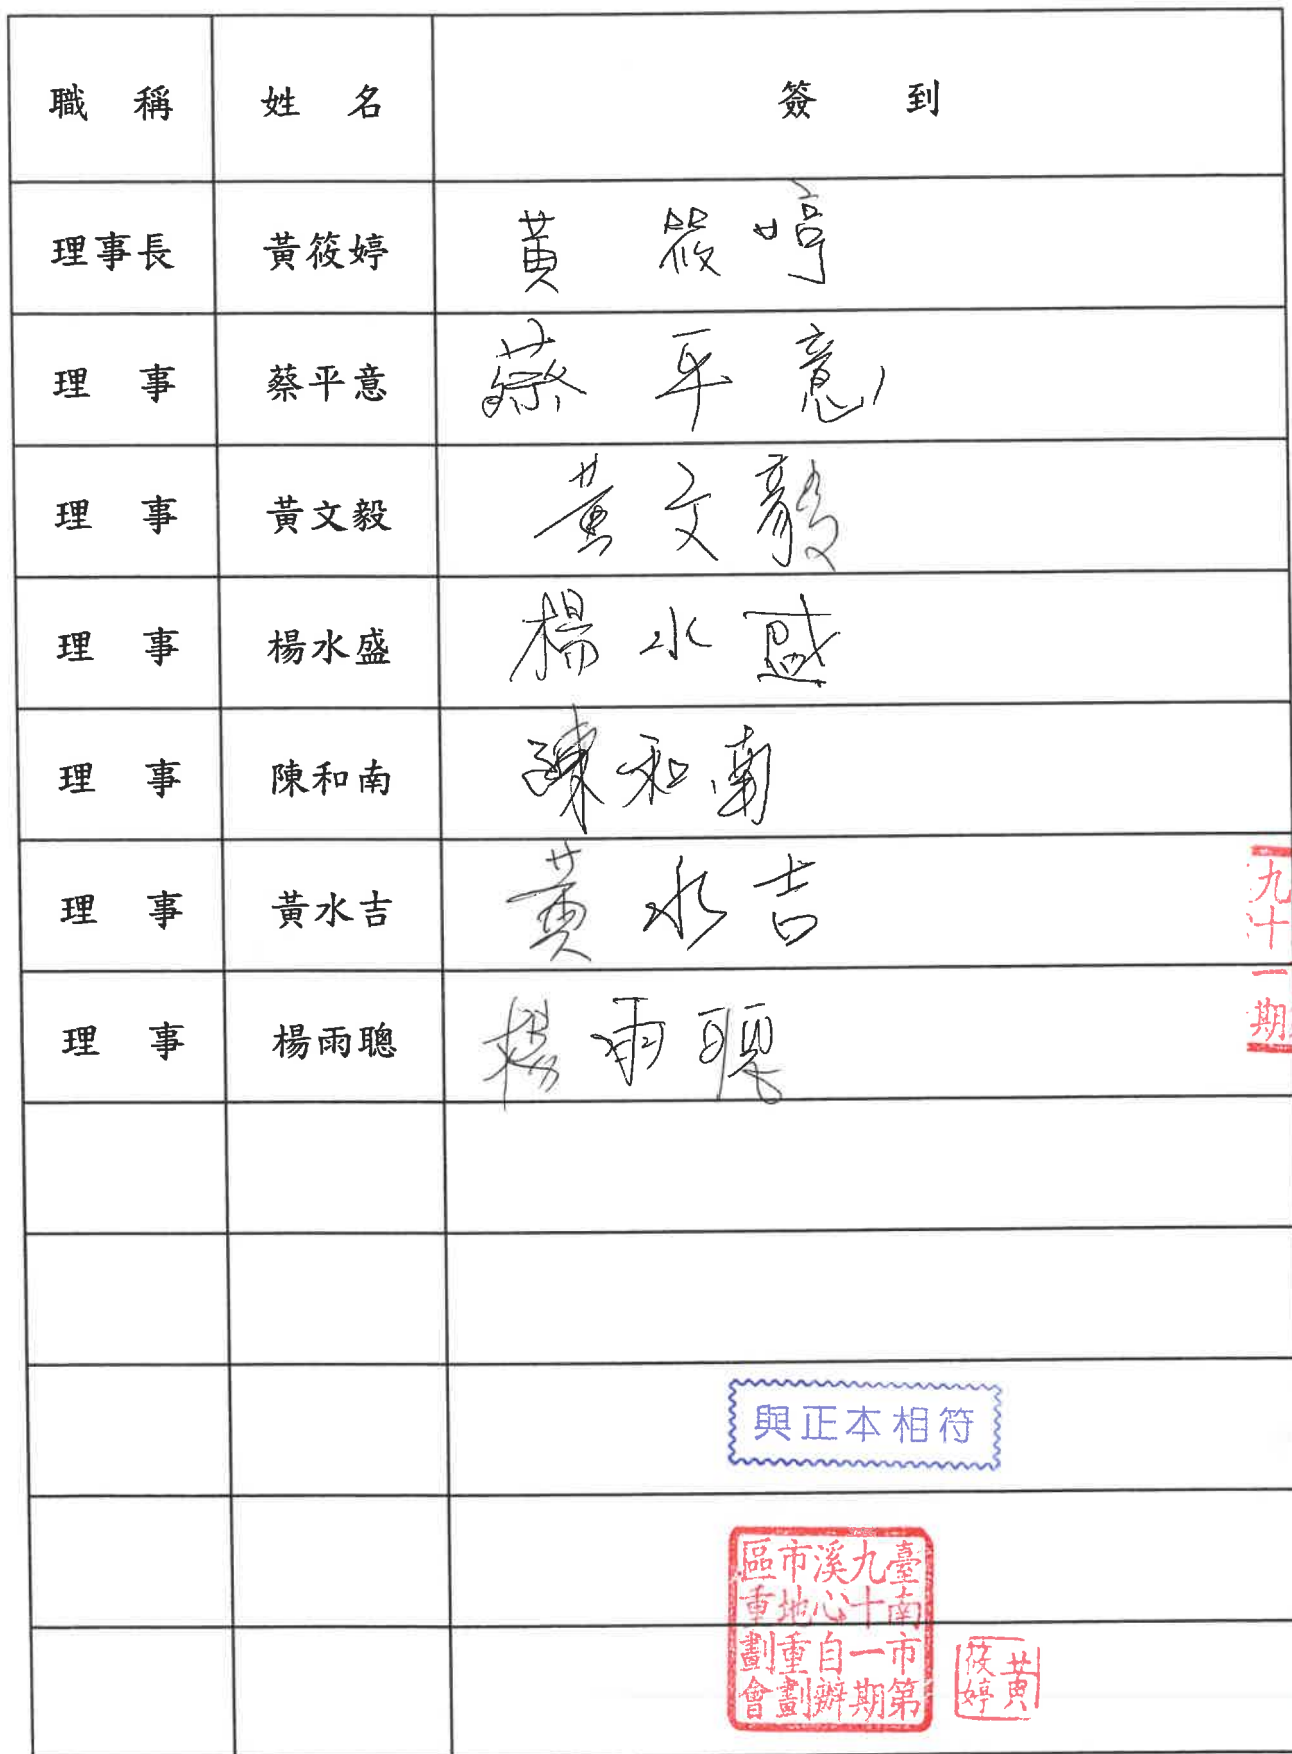 職稱 姓名 簽到
理事長 黃筱婷 黃筱婷
理事 蔡平意 蔡平意
理事 黃文毅 黃文毅
理事 楊水盛 楊水盛
理事 陳和南 陳和南
理事 黃水吉 黃水吉
理事 楊雨聰 楊雨聰
九十一期
與正本相符
臺南市第
九十一期
溪心自辦
市地重劃
區重劃會
黃
筱婷